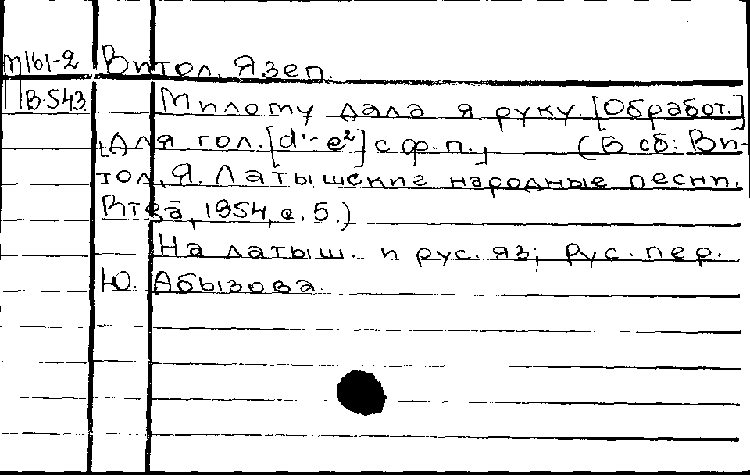 М161-2 Витол, Язеп.
В-543 Милому дала я руку. [Обработ.]
для гол. [d'-e²] с ф.п., (В сб: Ви-
тол, Я. Латышские народные песни.
1954, с. 5.)
На латыш. и рус. яз; Рус. пер.
Ю. Абызова.